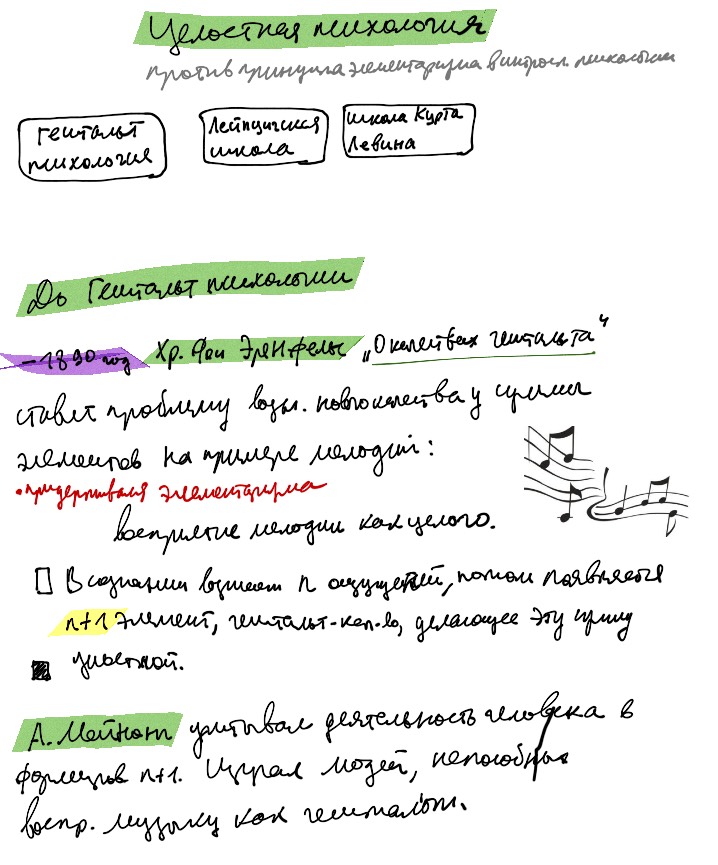 Целостная психология
против принципа элементаризма в интросп. психологии
гештальт
психология
Лейпцигская
школа
школа Курта
Левина
До Гештальт психологии
– 1890 год Хр. Фон Эренфельс „О качествах гештальта“
ставит проблему возн. нового качества у суммы
элементов на примере мелодий:
• придерживался элементаризма
восприятие мелодии как целого.
В сознании возникает n ощущений, потом появляется
n+1 элемент, гештальт-кач-во, делающее эту сумму
целостной.
А. Мейнонг учитывал деятельность человека в
n+1. людей, неспособных
воспр. музыку как гештальт.